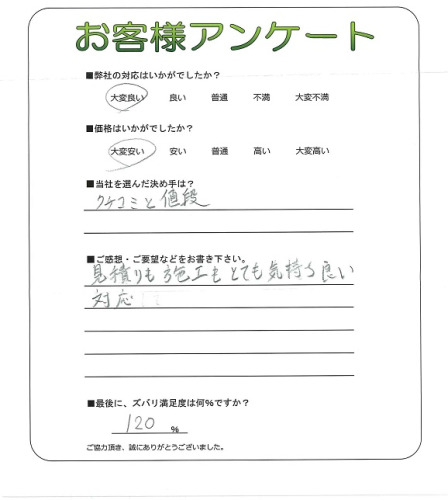 お客様アンケート
■弊社の対応はいかがでしたか？
大変良い 良い 普通 不満 大変不満
■価格はいかがでしたか？
大変安い 安い 普通 高い 大変高い
■当社を選んだ決め手は？
クチコミと値段
■ご感想・ご要望などをお書き下さい。
見積りも施工もとても気持ち良い
対応
■最後に、ズバリ満足度は何％ですか？
120 %
ご協力頂き、誠にありがとうございました。